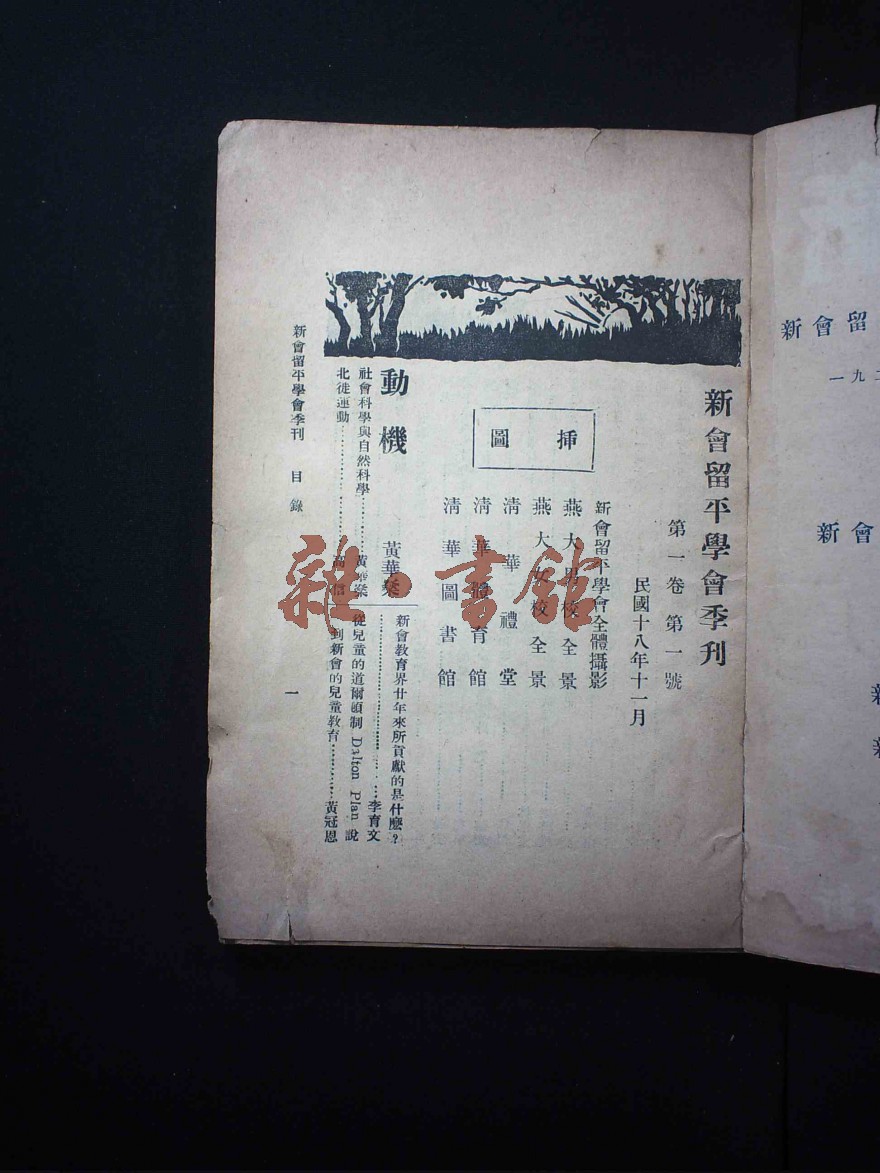 新會留平學會季刊
第一卷 第一號
民國十八年十一月
插圖
新會留平學會全體攝影
燕大男校全景
燕大女校全景
清華禮堂
清華體育館
清華圖書館
動機
黃華燊
社會科學與自然科學………黃華燊
北徙運動………
新會教育界廿年來所貢獻的是什麼?
………李育文
從兒童的道爾頓制 Dalton Plan 說
到新會的兒童教育………黃冠恩
新會留平學會季刊 目錄
一
雜·書館
新會留
二九一
新會
新
新